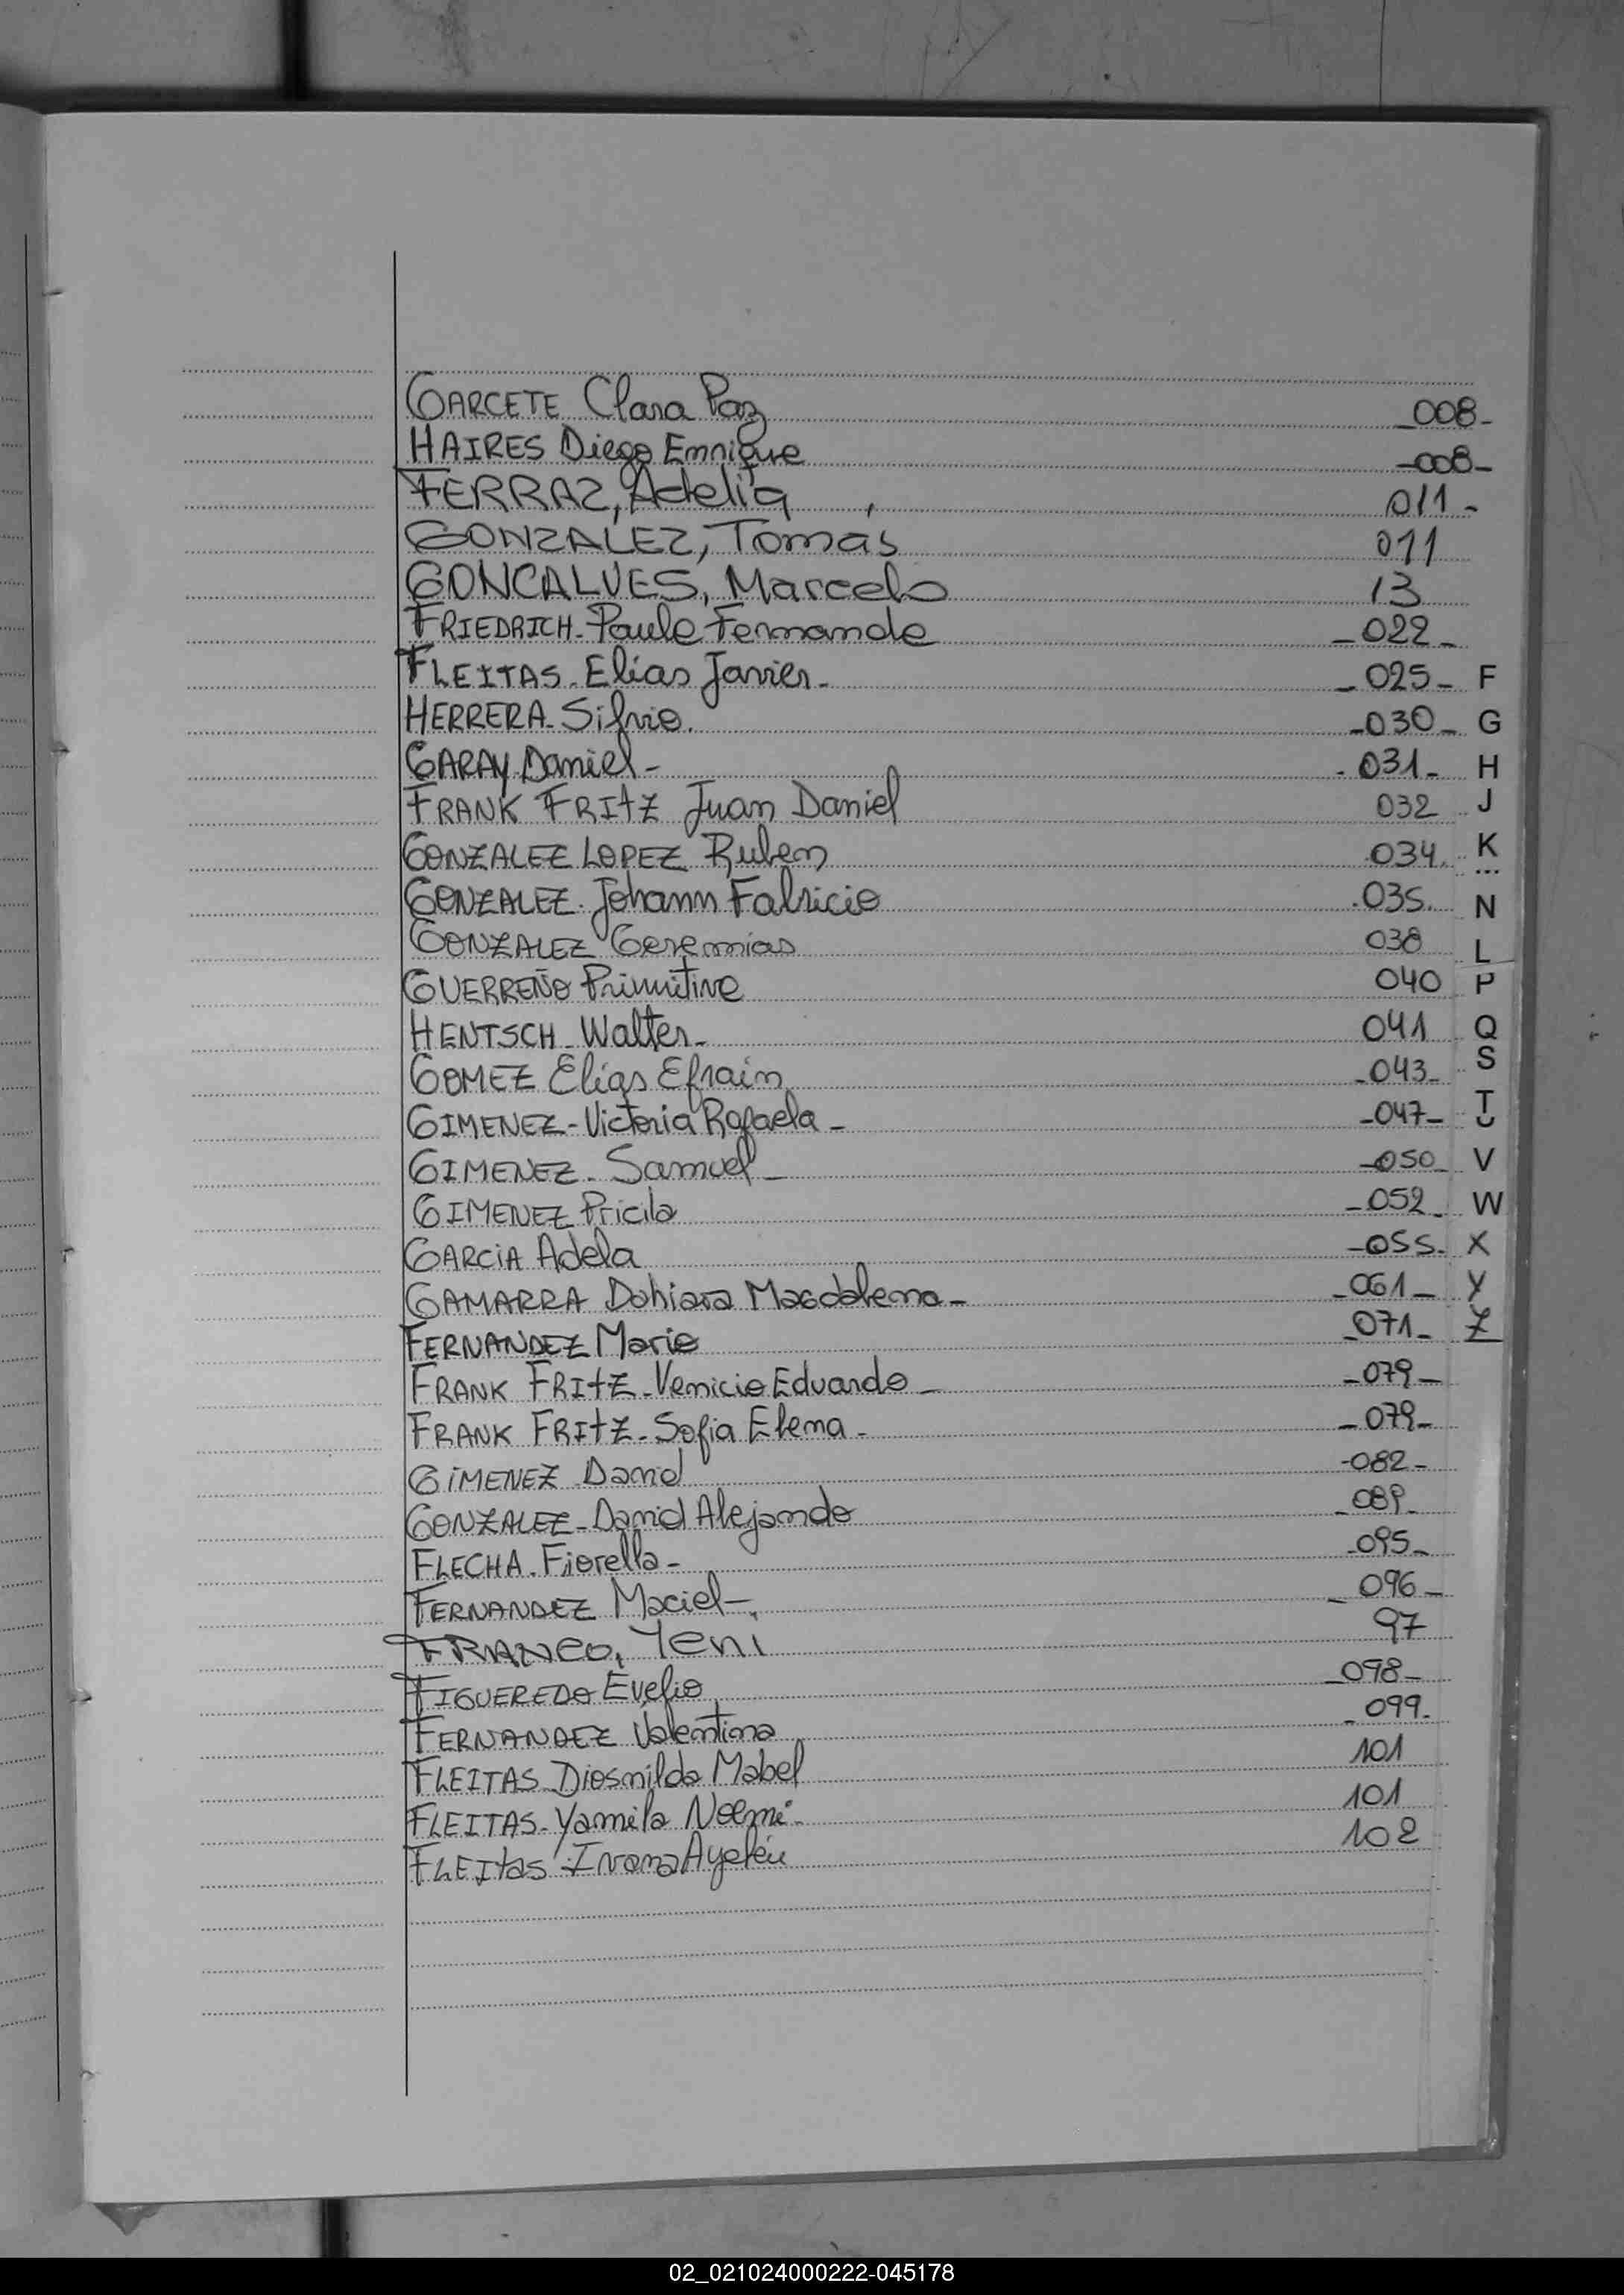 GARCETE Clara Paz _008-
HAIRES Diego Enrique -008-
FERRAZ, Adelia , 011 -
GONZALEZ, Tomás 011
GONCALVES, Marcelo 13
FRIEDRICH-Paulo Fernando _022_
FLEITAS-Elías Javier- _025_ F
HERRERA-Silvio. -030_ G
GARAY Daniel- -031- H
FRANK FRITZ Juan Daniel 032 J
GONZALEZ LOPEZ Ruben 034. K
...
GONZALEZ. Johann Fabricio .035. N
GONZALEZ Geremias 038 L
GUERREÑO Primitivo 040 P
HENTSCH-Walter- 041 Q
GOMEZ Elías Efrain -043- S
GIMENEZ-Victoria Rafaela - -047- T
U
GIMENEZ-Samuel_ -050_ V
GIMENEZ Pricila _052_ W
GARCIA Adela -055. X
GAMARRA Dahiara Magdalena- _061_ Y
FERNANDEZ Mario _071_ Z
FRANK FRITZ-Venicio Eduardo_ -079_
FRANK FRITZ-Sofia Elena - _079-
GIMENEZ Daniel -082-
GONZALEZ-David Alejando _089_
FLECHA. Fiorella- _095_
FERNANDEZ Maciel-. _096_
FRANCO, Yeni 97
FIGUEREDO Evelio _098-
FERNANDEZ Valentina _099.
FLEITAS-Diosnilda Mabel 101
FLEITAS-Yamila Noemi- 101
FLEItas Ivana Ayelén 102
02_021024000222-045178